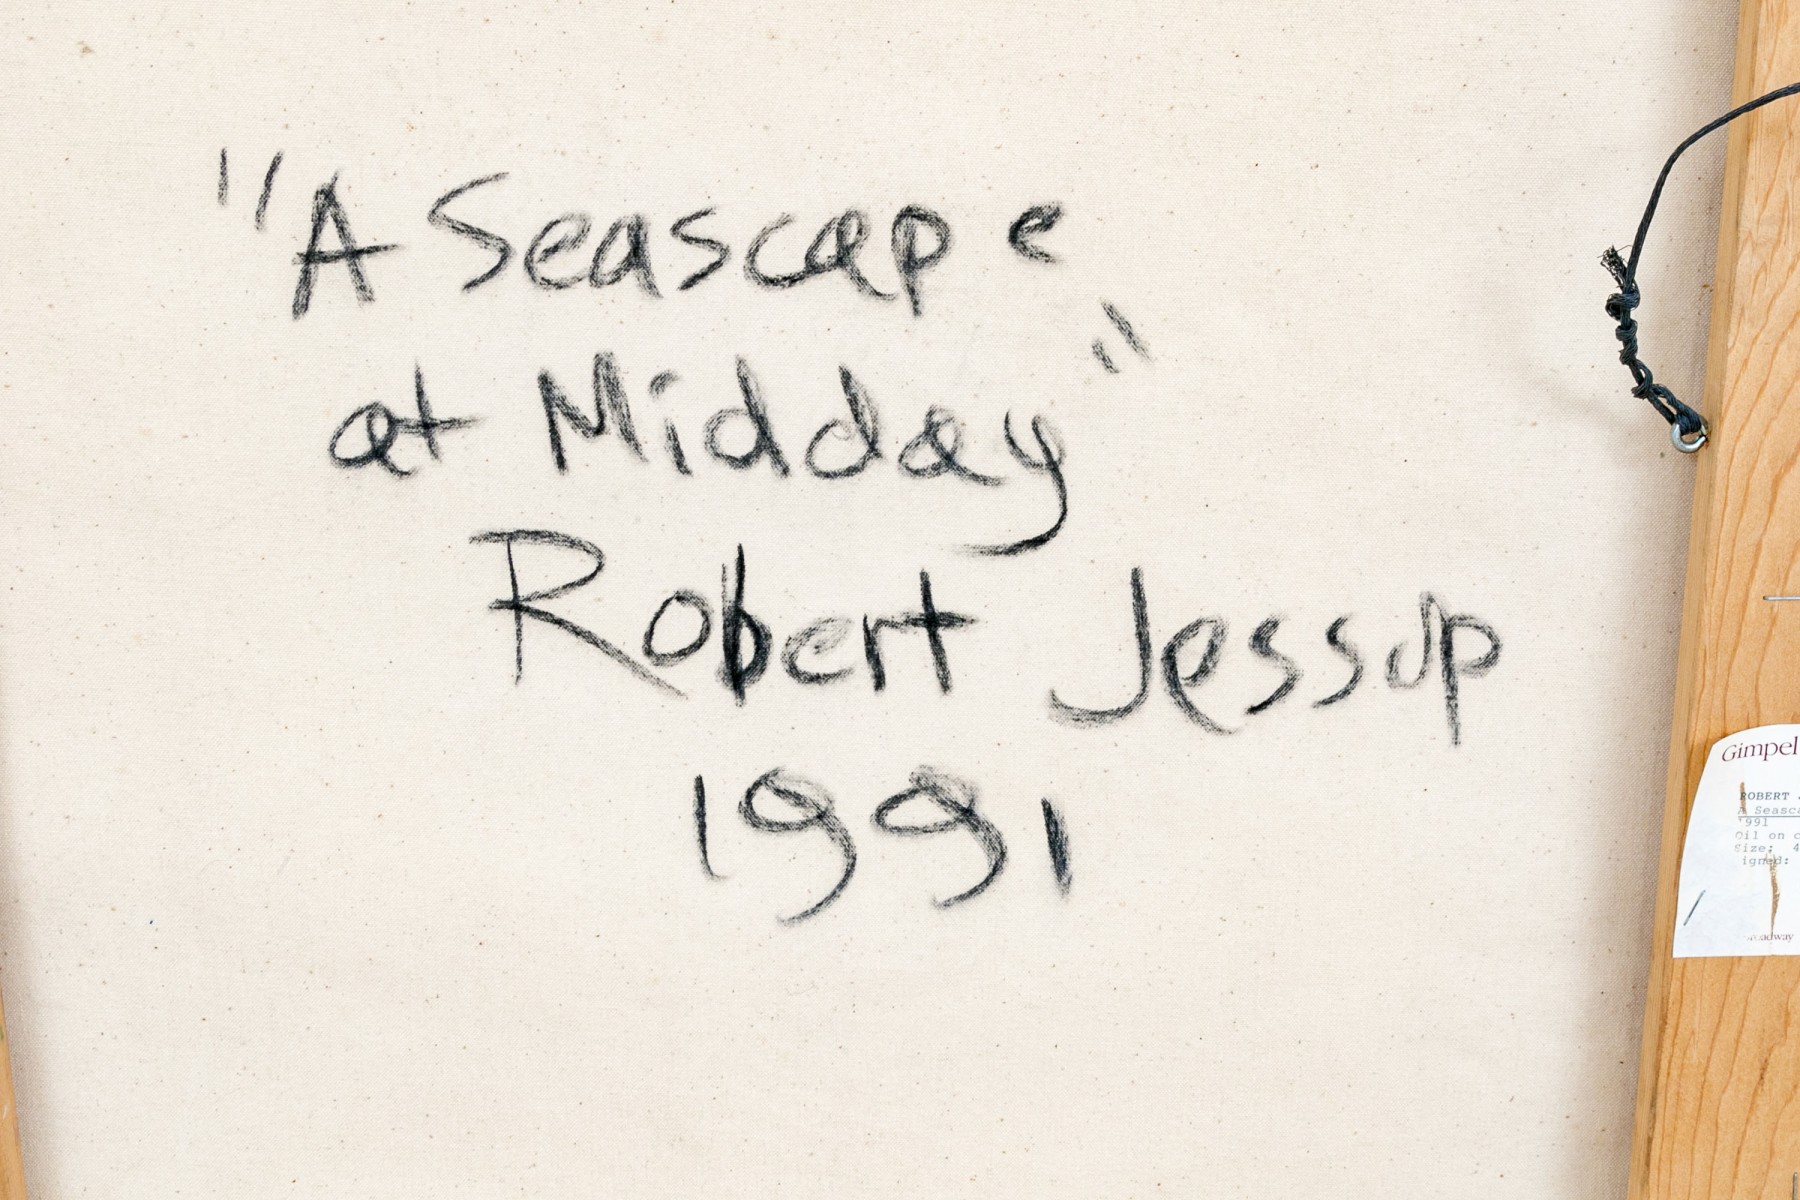 "A Seascape
at Midday"
Robert Jessup
1991
Gimpel
ROBERT
A Seasca
1991
Oil on c
Size: 4
igned: